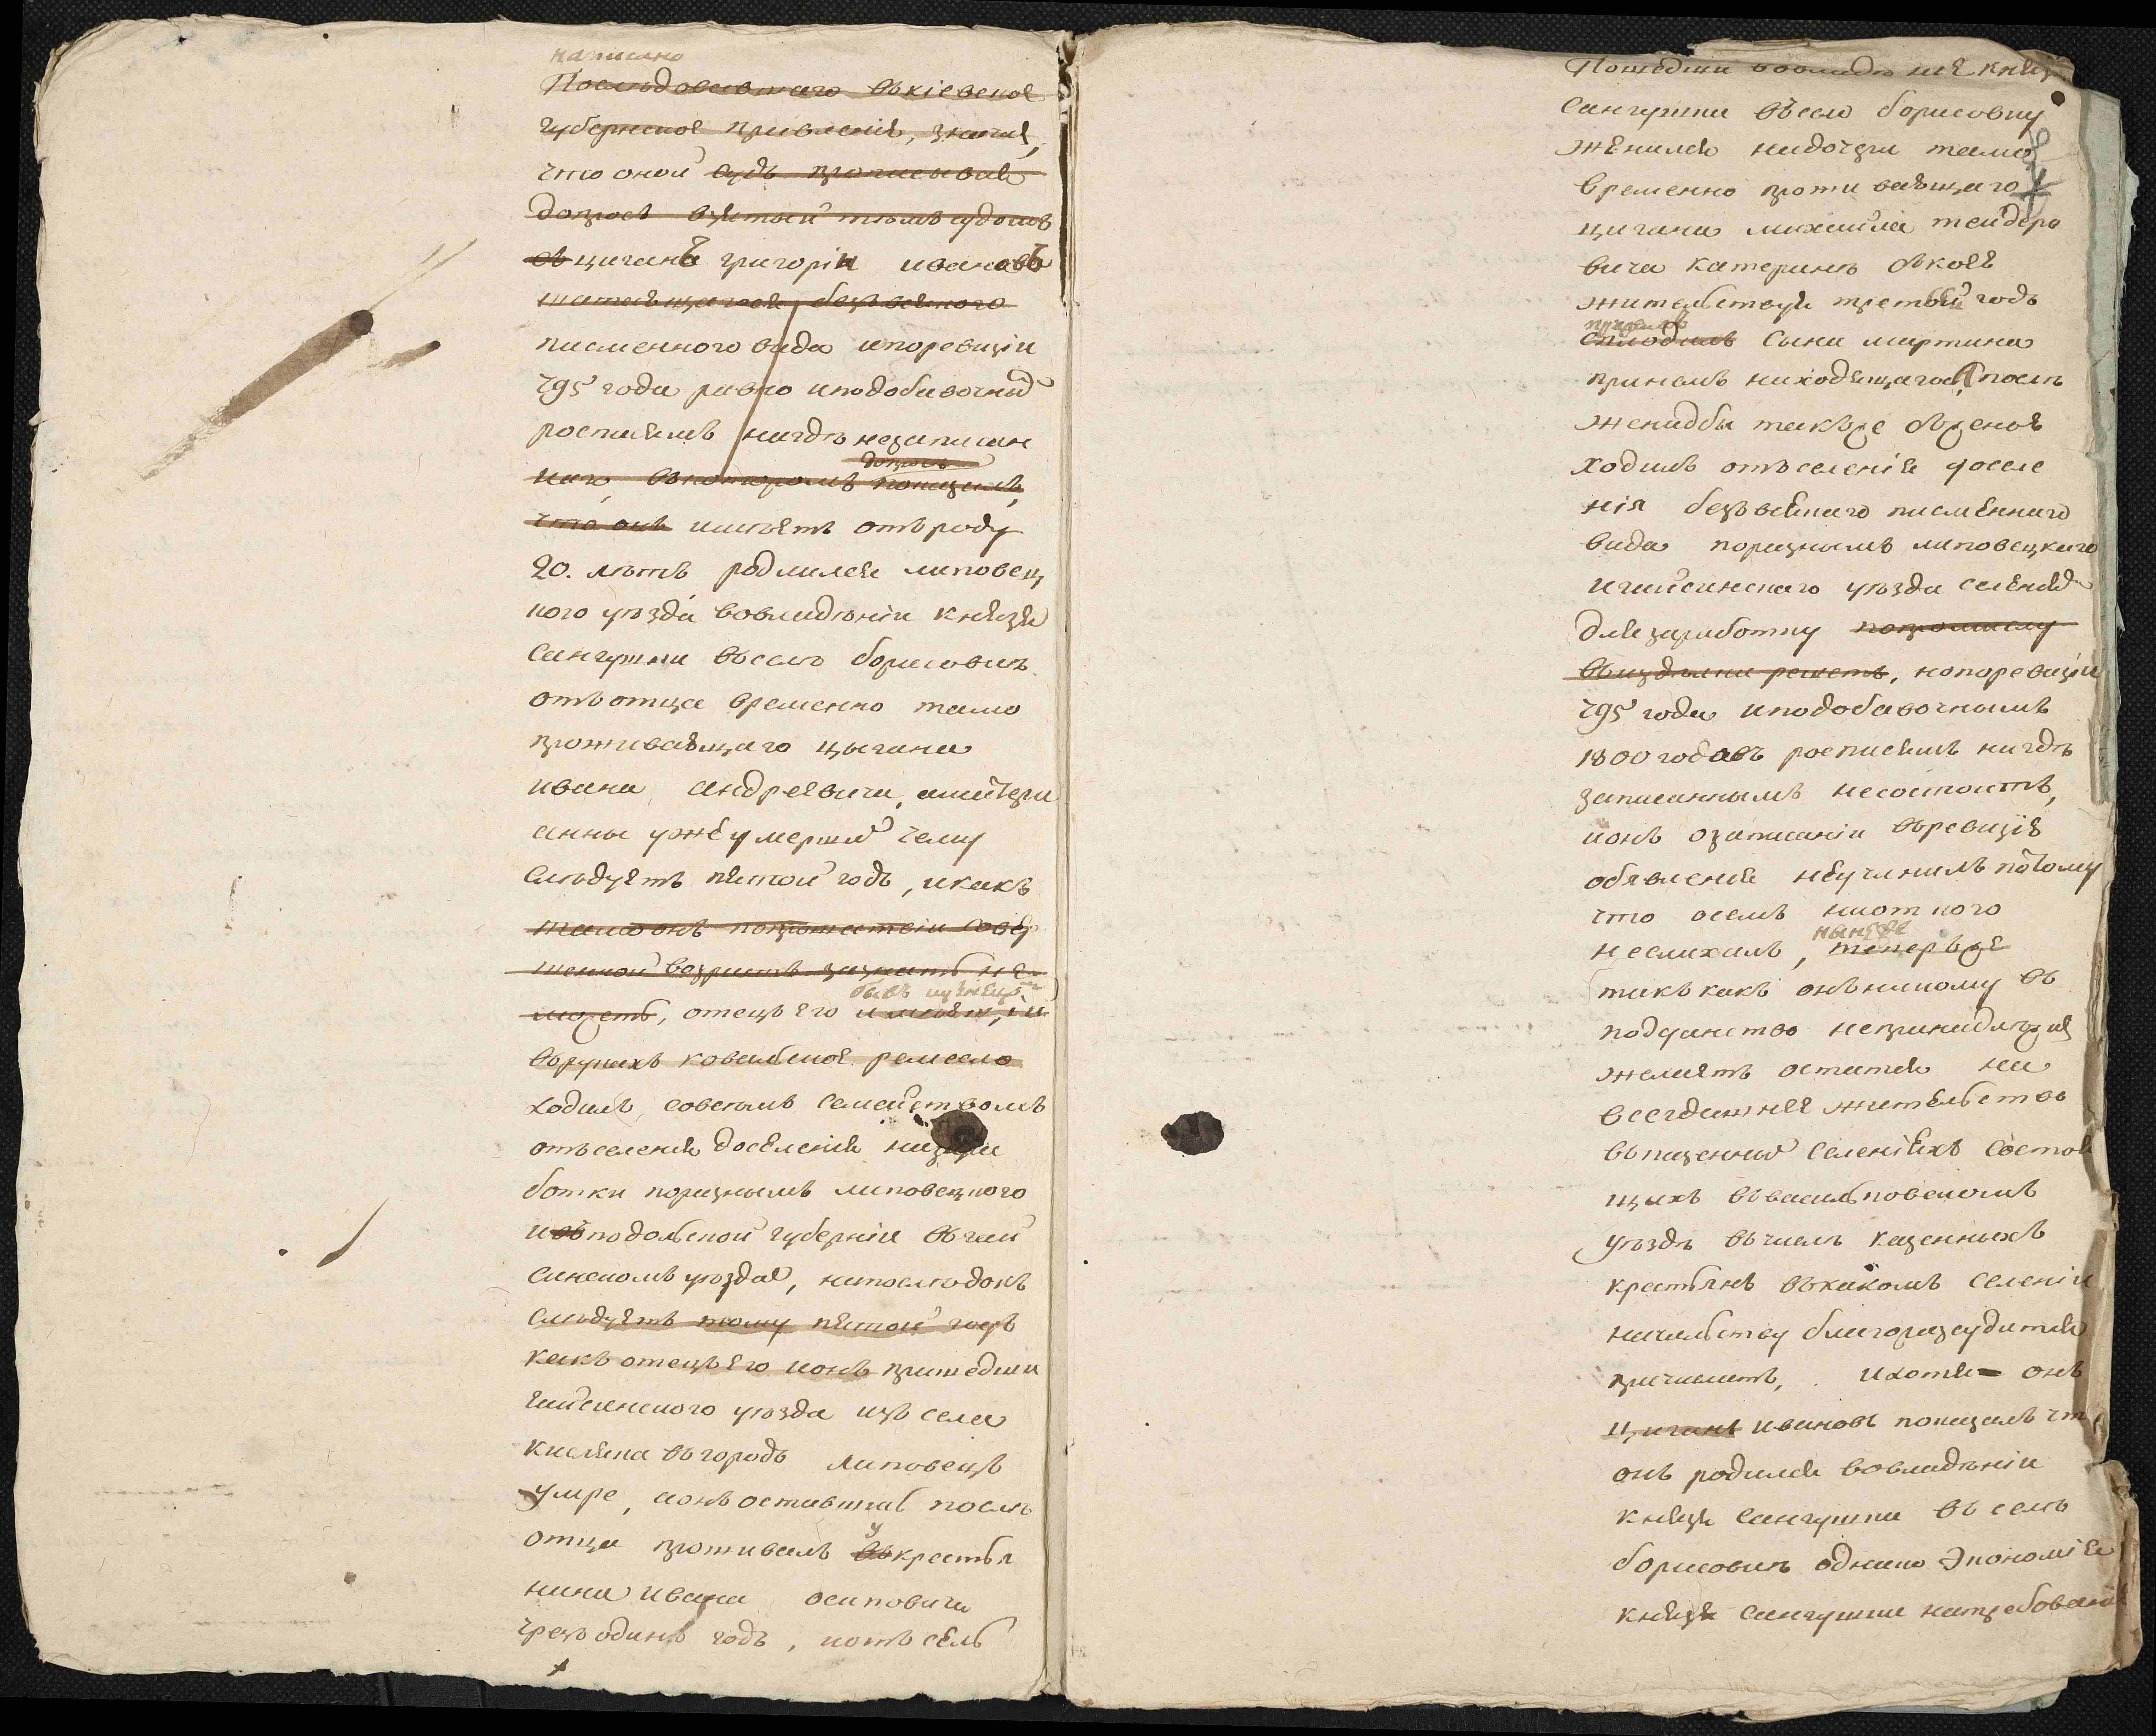 написано
Последовавшаго въ кіевское
губернское правленіе, значе,
что оной судъ прописывая
допросъ взятый темъ судомъ
съ цигана григорія ивановъ
шатающагося безъ всякого
писменного вида ипоревизіи
795 года равно иподобавочной
росписямъ нигдѣ незаписан
наго, вкоторомъ показалъ,
допросъ
что онъ имѣетъ отъ роду
20. лѣтъ родился липовец
кого уѣзда вовладѣніи князя
сангушки въселѣ борисовкѣ
отъ отца временно тамо
проживающаго цыгана
ивана андреевича, аматери
анны уже умершой чему
слѣдуетъ пятой годъ, икакъ
тамо онъ попрошествіи совер
шенной возрастъ зазнать не
можетъ, отецъ его имѣя,
врукахъ ковальское ремесло
ходилъ совсемъ семействомъ
отъселенія доселенія
ботки поразнымъ липовецкого
ивъ подольской губерніи въ гай
синскомъ уезде, напоследокъ
слѣдуетъ тому пятой годъ
какъ отецъ его ионъ пришедши
гайсинского уѣзда изъ села
кисляка въгородъ липовецъ
умре, аонъ оставшись послѣ
отца проживалъ въ у крестья
нина ивана осиповича
чрезъ одинъ годъ, иотъ сель
Пошедши вовладѣніе князя
сангушки въсело борисовку
женился надочери тамо
временно проживающаго
цигана михайла
вича катеринѣ съкоей
жительствуя третьей годъ
сплодилъ сына мартина
принемъ находящагося, послѣ
женидбы такъже съженой
ходилъ отъселенія доселе
нія безъвсякаго писменнаго
вида поразнымъ липовецкаго
игайсинскаго уѣзда селеній
для заработку попромислу
въиздѣлки решетъ, нопоревизіи
795 года иподобавочнымъ
1800 годовъ росписямъ нигдѣ
записаннымъ несостоитъ,
ионъ озаписаніи въревизіе
обявленія неучинилъ потому
что осемъ ниоткого
неслихалъ, теперьже
нынеже
такъ какъ онъ никому въ
подданство непринадлежа
желаетъ остатся на
всегдашнее жительство
въказенной селеніяхъ состоя
щихъ въвасильковскомъ
уѣздѣ вчислѣ казенныхъ
крестьянъ въкакомъ селеніи
начальству благоразсудится
причислить, ихотя= онъ
циганъ ивановъ показалъ что
онъ родился вовладѣніи
князя сангушки въ селѣ
борисовкѣ однако экономія
князя сангушки натребованіе